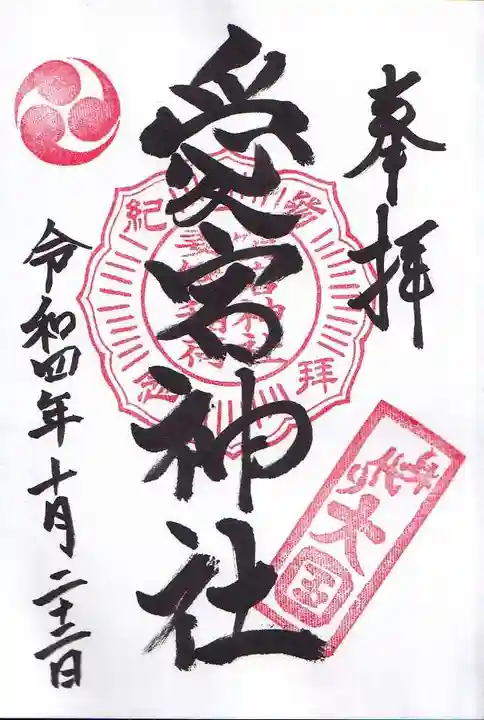 奉拝
愛宕神社
令和四年十月二十二日
參拝
紀念